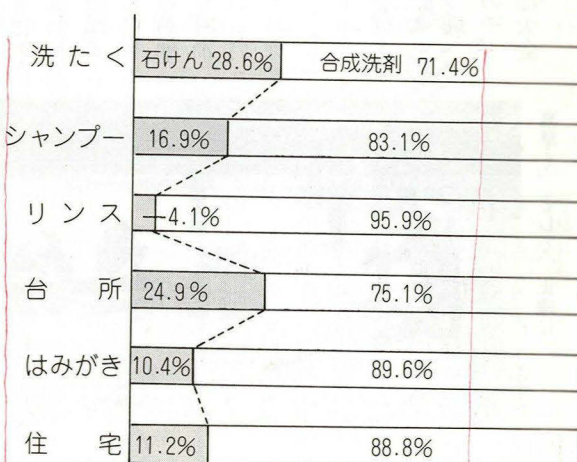 洗たく 石けん 28.6% 合成洗剤 71.4%
シャンプー 16.9% 83.1%
リンス 4.1% 95.9%
台所 24.9% 75.1%
はみがき 10.4% 89.6%
住宅 11.2% 88.8%